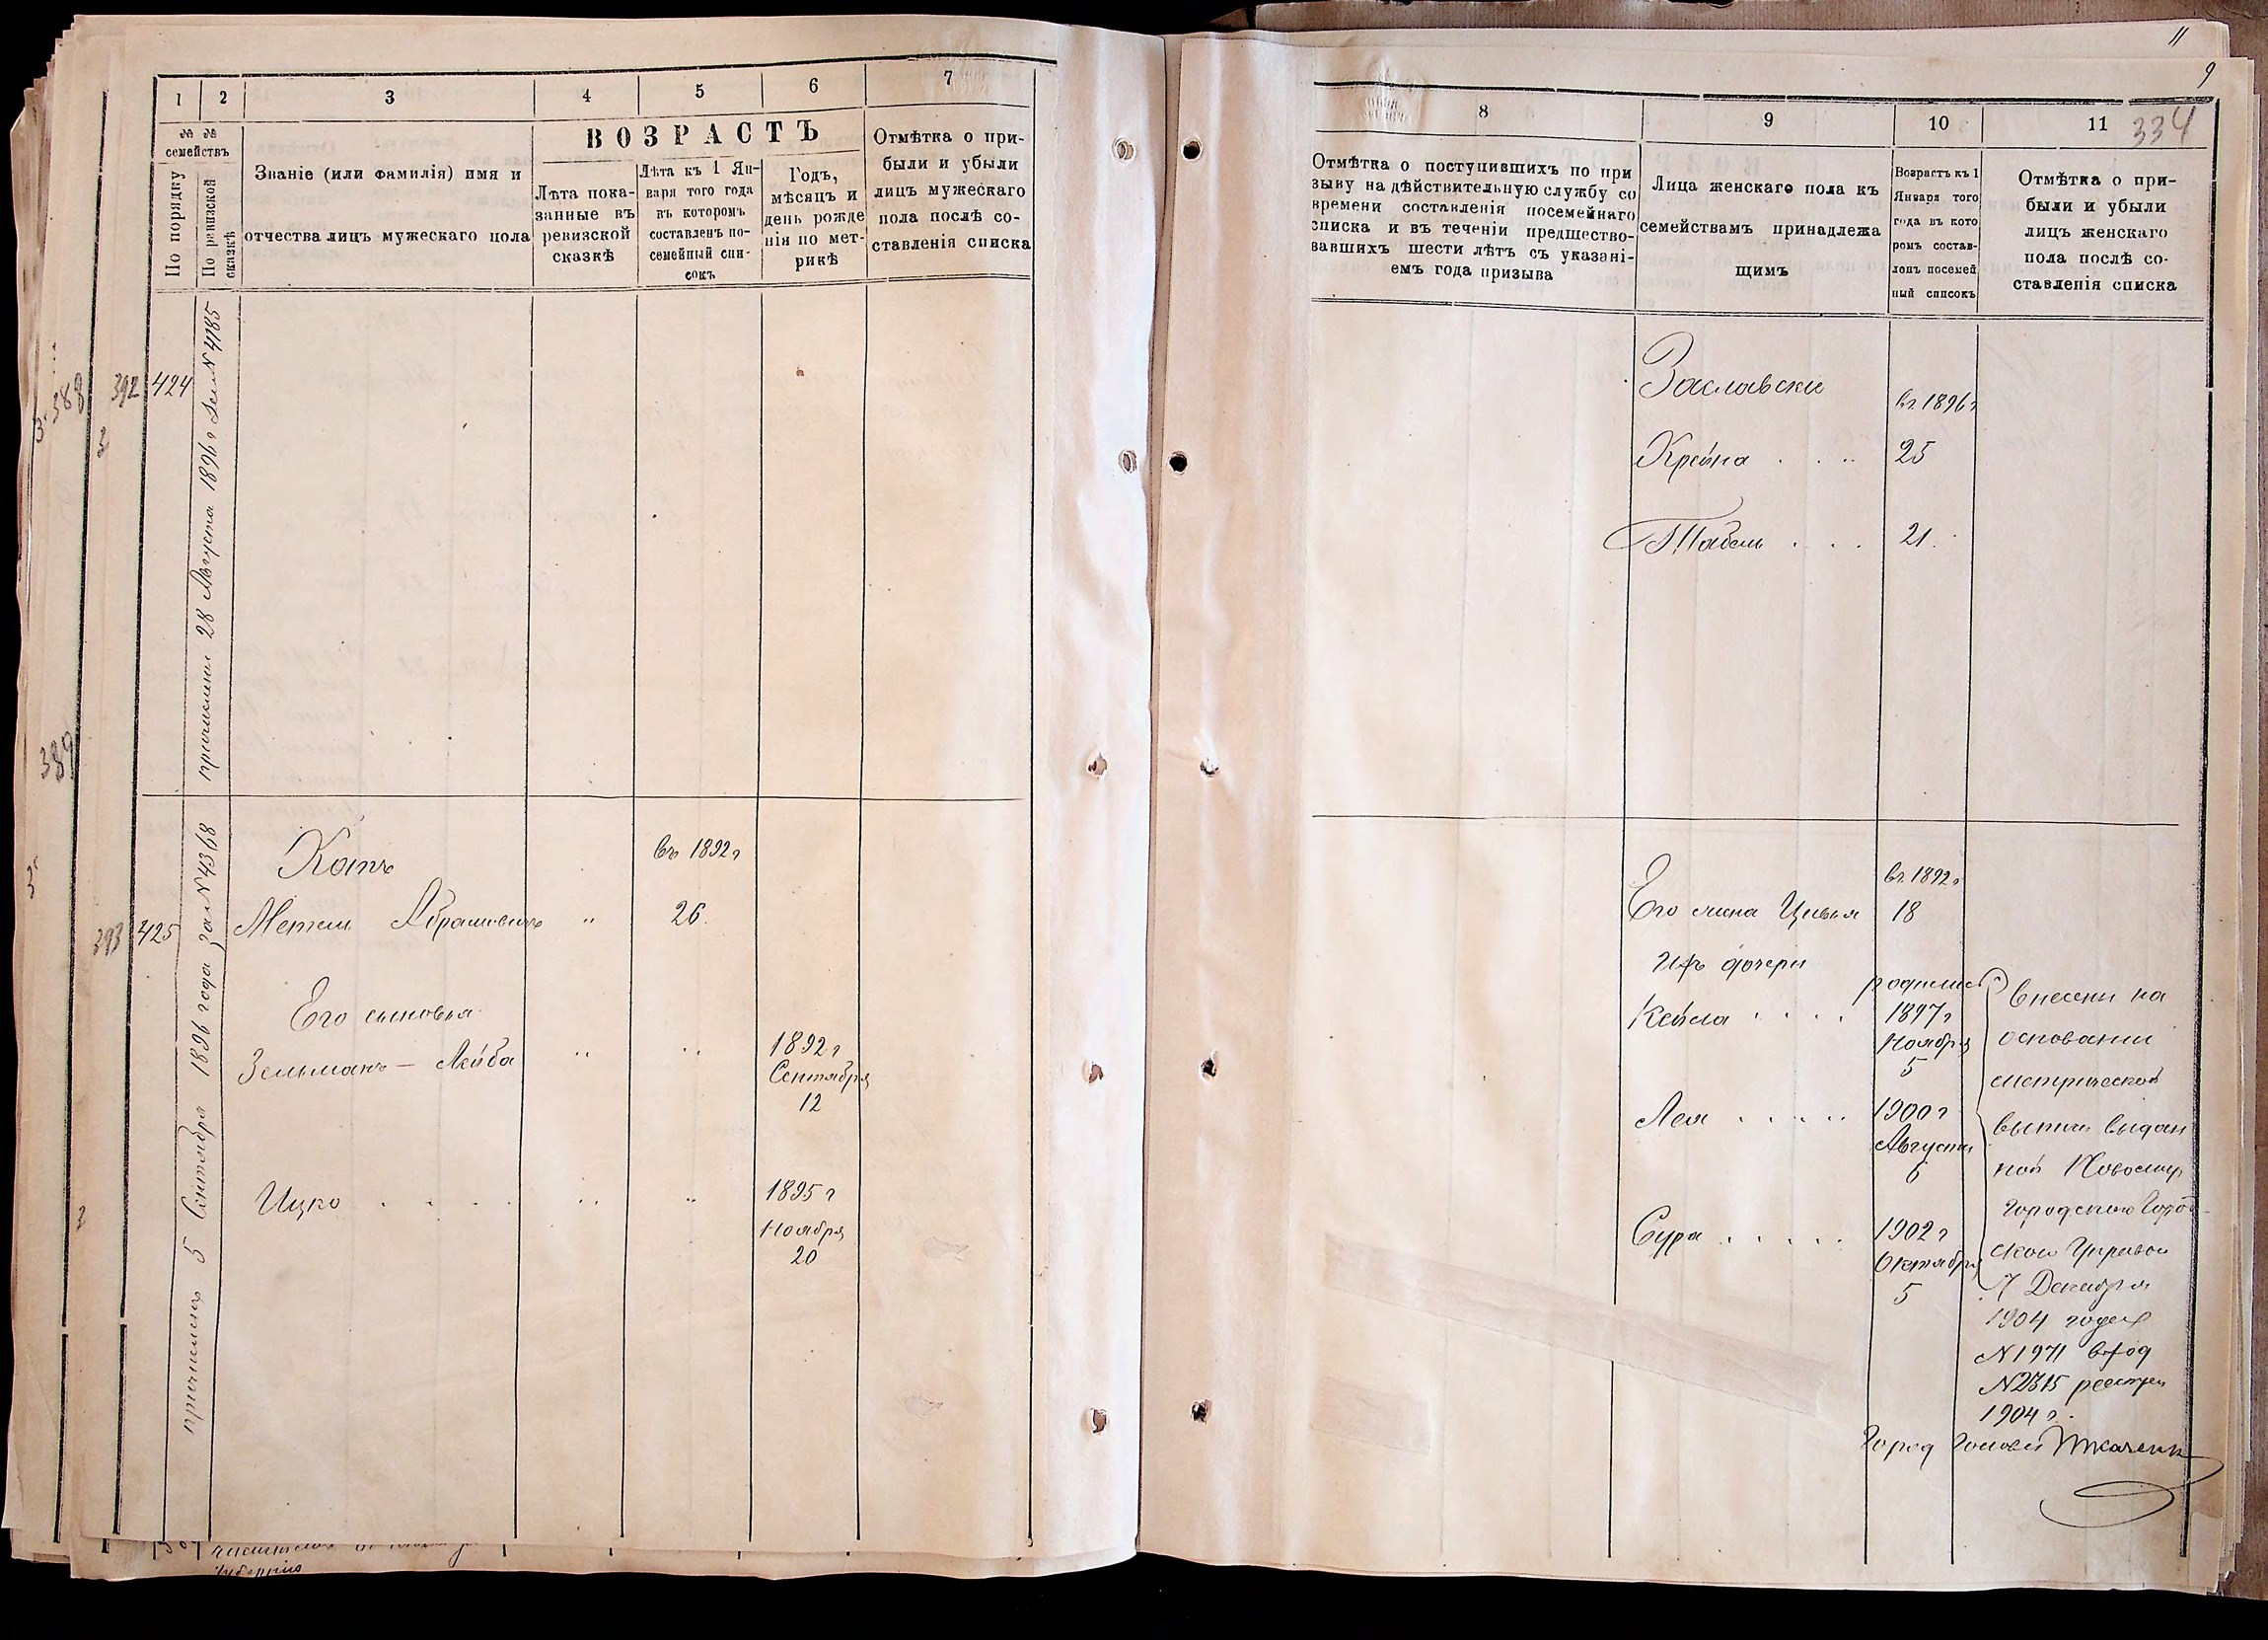 1
2
3
4
5
6
7
№ №
семействъ
По порядку
По ревизской
сказкѣ
Званіе (или фамилія) имя и
отчества лицъ мужескаго пола
ВОЗРАСТЪ
Лѣта пока-
занные въ
ревизской
сказкѣ
Лѣта къ 1 Ян-
варя того года
въ которомъ
составленъ по-
семейный спи-
сокъ
Годъ,
мѣсяцъ и
день рожде
нія по мет-
рикѣ
Отмѣтка о при-
были и убыли
лицъ мужескаго
пола послѣ со-
ставленія списка
388
392
424
причислены 28 Августа 1896 г № 4185
389
393
425
причисленъ 5 Сентября 1896 года за № 4368
Кацъ
въ 1892 г
Метель Абрамовичъ
"
26
Его сыновья
Зельманъ - Лейба
1892 г
Сентября
12
Ицко
1895 г
Ноября
20
11
9
334
8
9
10
11
Отмѣтка о поступившихъ по при
зыву на дѣйствительную службу со
времени составленія посемейнаго
списка и въ теченіи предшество-
вавшихъ шести лѣтъ съ указані-
емъ года призыва
Лица женскаго пола къ
семействамъ принадлежа
щимъ
Возрастъ къ 1
Января того
года въ кото
ромъ состав-
ленъ посемей
ный списокъ
Отмѣтка о при-
были и убыли
лицъ женскаго
пола послѣ со-
ставленія списка
Заславски
въ 1896 г
Крейна
25
Табель
21
въ 1892 г
Его жена Цивья
18
Ихъ дочери
родились
Кейла
1897 г
Ноября
5
Лея
1900 г
Августа
6
Сура
1902 г
Октября
5
Внесены на
основании
метрической
выписи выдан
ной Новомир
городскою Город
скою Управою
7 Декабря
1904 года
№ 1971 вход
№ 2315 реестра
1904 г.
Город Голова Ткаченко